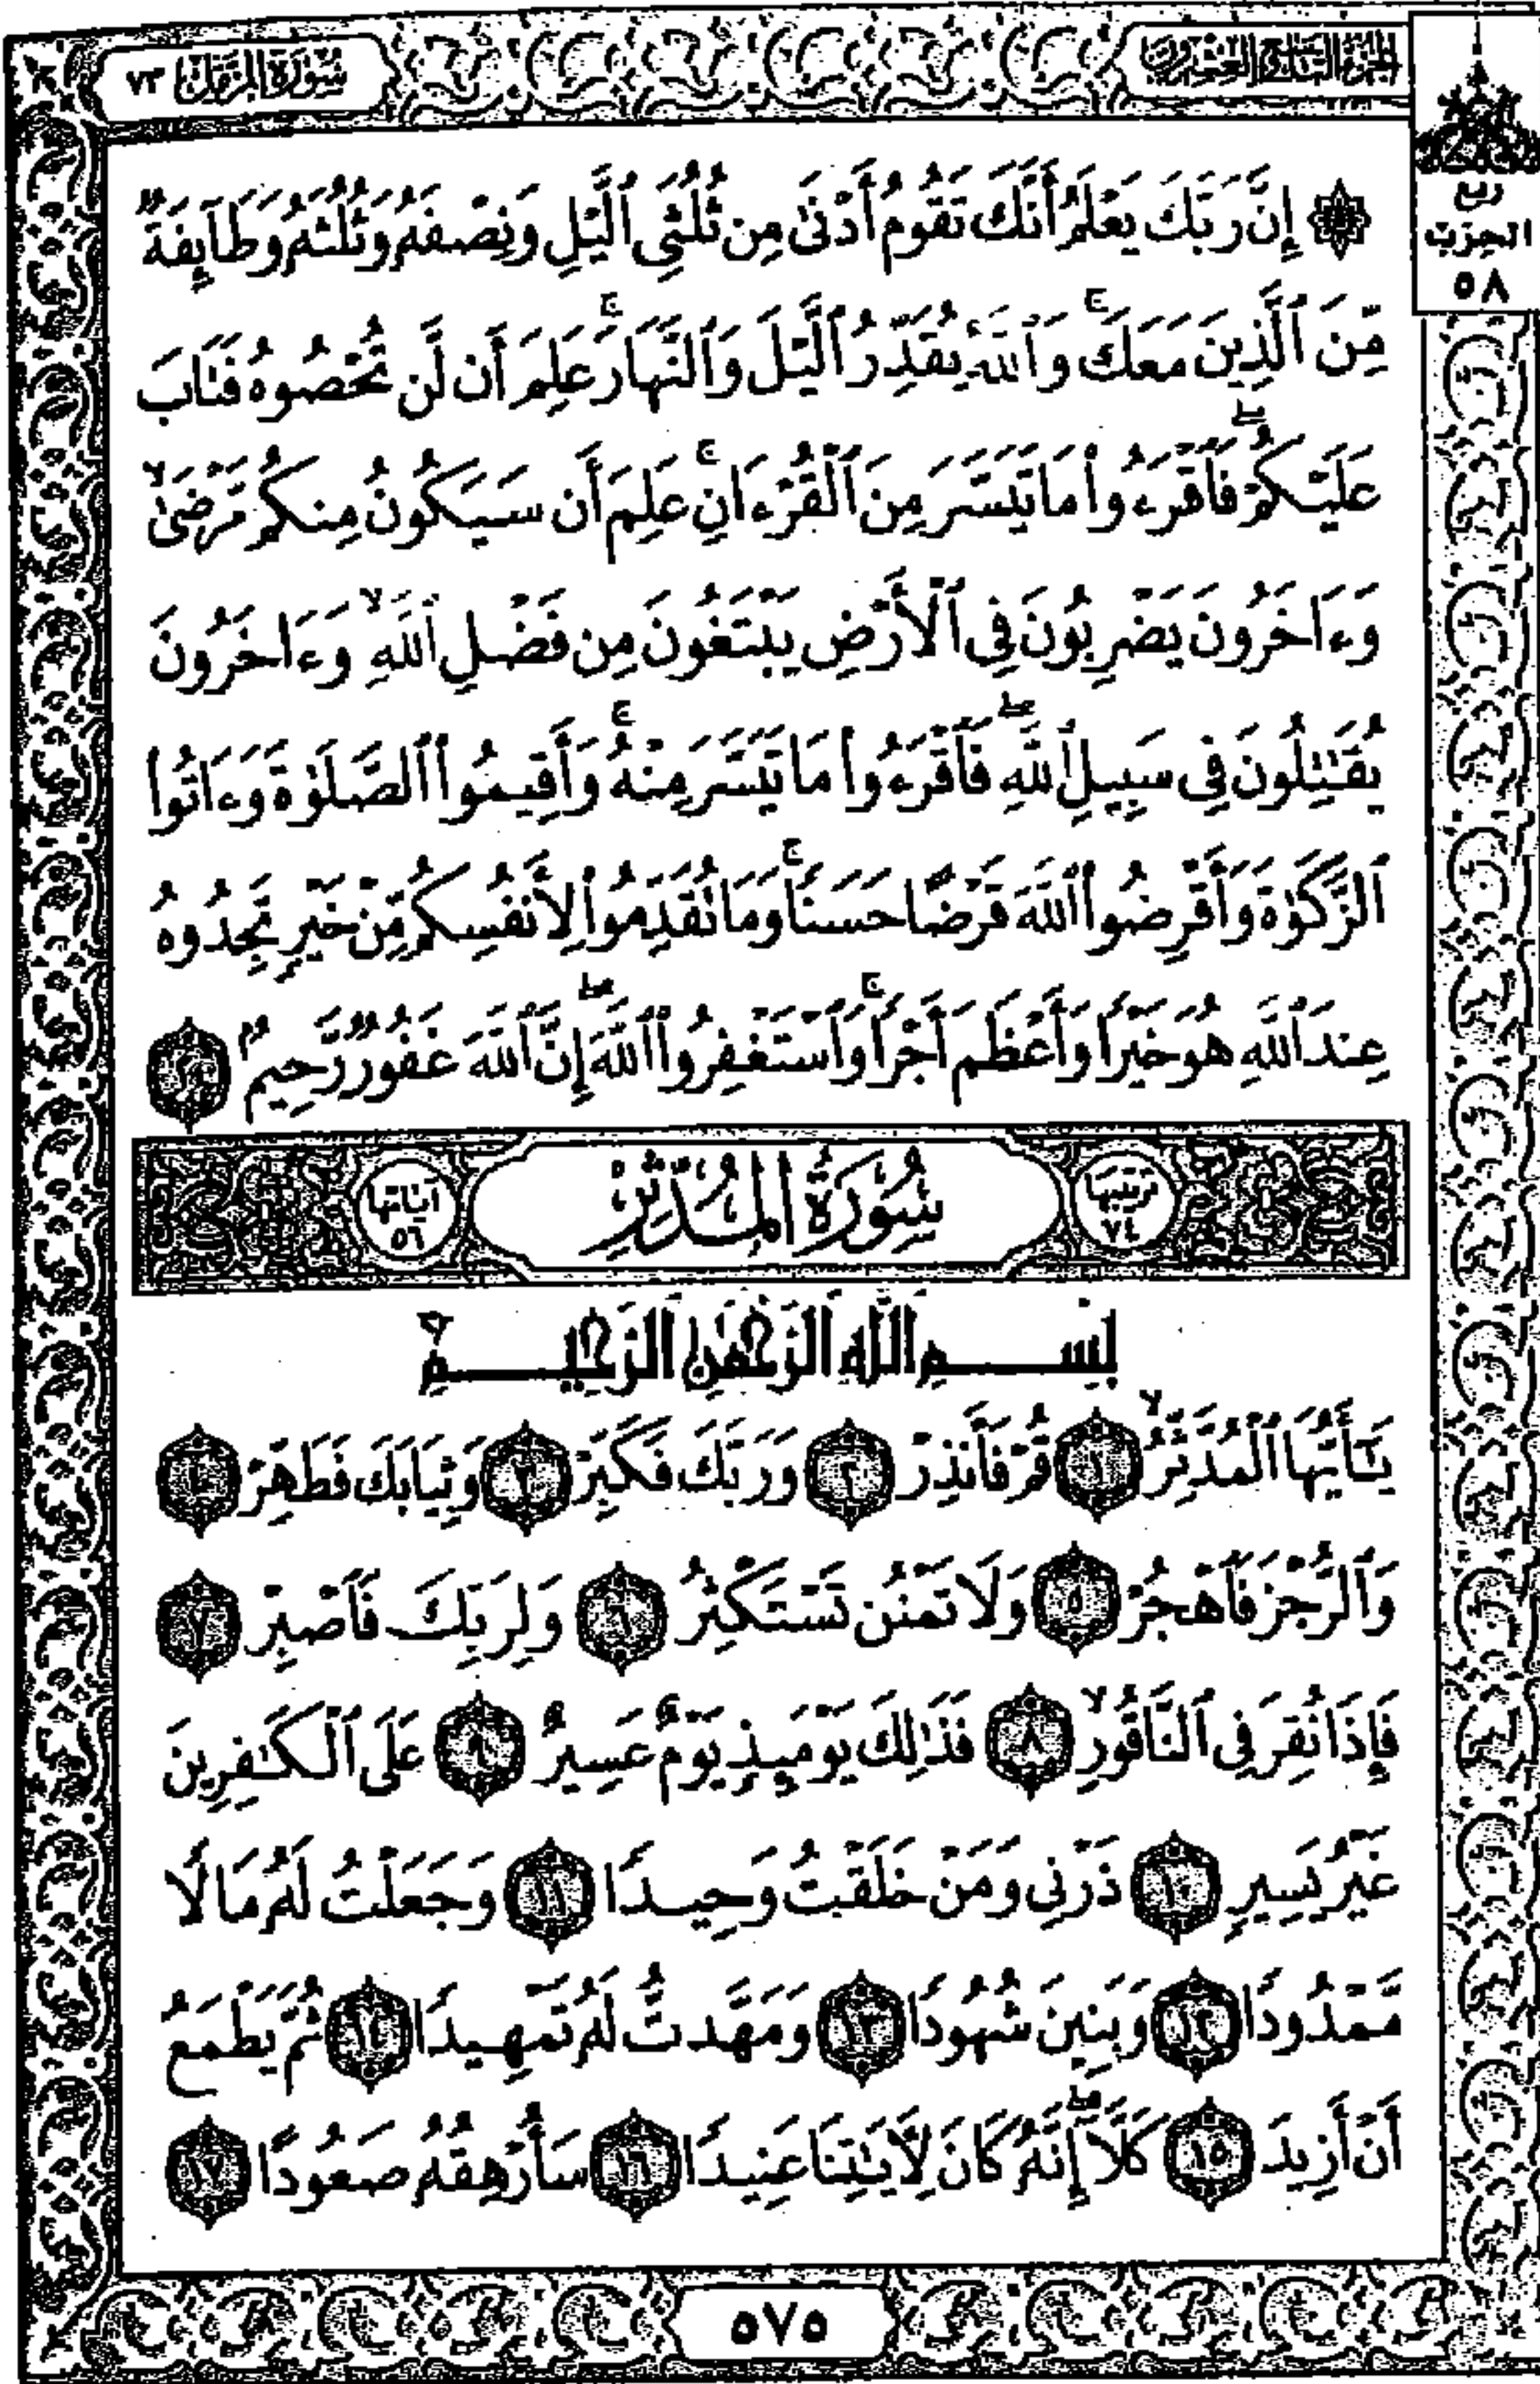 الجزء التاسع والعشرون
سُورَةُ المُزَّمِّل ٧٣
ربع
الحزب
٥٨
۞ إِنَّ رَبَّكَ يَعْلَمُ أَنَّكَ تَقُومُ أَدْنَىٰ مِن ثُلُثَيِ ٱلَّيْلِ وَنِصْفَهُۥ وَثُلُثَهُۥ وَطَآئِفَةٌ
مِّنَ ٱلَّذِينَ مَعَكَ ۚ وَٱللَّهُ يُقَدِّرُ ٱلَّيْلَ وَٱلنَّهَارَ ۚ عَلِمَ أَن لَّن تُحْصُوهُ فَتَابَ
عَلَيْكُمْ ۖ فَٱقْرَءُوا۟ مَا تَيَسَّرَ مِنَ ٱلْقُرْءَانِ ۚ عَلِمَ أَن سَيَكُونُ مِنكُم مَّرْضَىٰ ۙ
وَءَاخَرُونَ يَضْرِبُونَ فِى ٱلْأَرْضِ يَبْتَغُونَ مِن فَضْلِ ٱللَّهِ ۙ وَءَاخَرُونَ
يُقَـٰتِلُونَ فِى سَبِيلِ ٱللَّهِ ۖ فَٱقْرَءُوا۟ مَا تَيَسَّرَ مِنْهُ ۚ وَأَقِيمُوا۟ ٱلصَّلَوٰةَ وَءَاتُوا۟
ٱلزَّكَوٰةَ وَأَقْرِضُوا۟ ٱللَّهَ قَرْضًا حَسَنًا ۚ وَمَا تُقَدِّمُوا۟ لِأَنفُسِكُم مِّنْ خَيْرٍ تَجِدُوهُ
عِندَ ٱللَّهِ هُوَ خَيْرًا وَأَعْظَمَ أَجْرًا ۚ وَٱسْتَغْفِرُوا۟ ٱللَّهَ ۖ إِنَّ ٱللَّهَ غَفُورٌ رَّحِيمٌۢ ٢٠
ترتيبها ٧٤ سُورَةُ المُدَّثِّرِ آياتها ٥٦
بِسْمِ اللَّهِ الرَّحْمَٰنِ الرَّحِيمِ
يَـٰٓأَيُّهَا ٱلْمُدَّثِّرُ ۙ ١ قُمْ فَأَنذِرْ ٢ وَرَبَّكَ فَكَبِّرْ ٣ وَثِيَابَكَ فَطَهِّرْ ٤
وَٱلرُّجْزَ فَٱهْجُرْ ٥ وَلَا تَمْنُن تَسْتَكْثِرُ ٦ وَلِرَبِّكَ فَٱصْبِرْ ٧
فَإِذَا نُقِرَ فِى ٱلنَّاقُورِ ۙ ٨ فَذَٰلِكَ يَوْمَئِذٍ يَوْمٌ عَسِيرٌ ٩ عَلَى ٱلْكَـٰفِرِينَ
غَيْرُ يَسِيرٍ ١٠ ذَرْنِى وَمَنْ خَلَقْتُ وَحِيدًا ١١ وَجَعَلْتُ لَهُۥ مَالًا
مَّمْدُودًا ١٢ وَبَنِينَ شُهُودًا ١٣ وَمَهَّدتُّ لَهُۥ تَمْهِيدًا ١٤ ثُمَّ يَطْمَعُ
أَنْ أَزِيدَ ١٥ كَلَّآ ۖ إِنَّهُۥ كَانَ لِـَٔايَـٰتِنَا عَنِيدًا ١٦ سَأُرْهِقُهُۥ صَعُودًا ١٧
٥٧٥